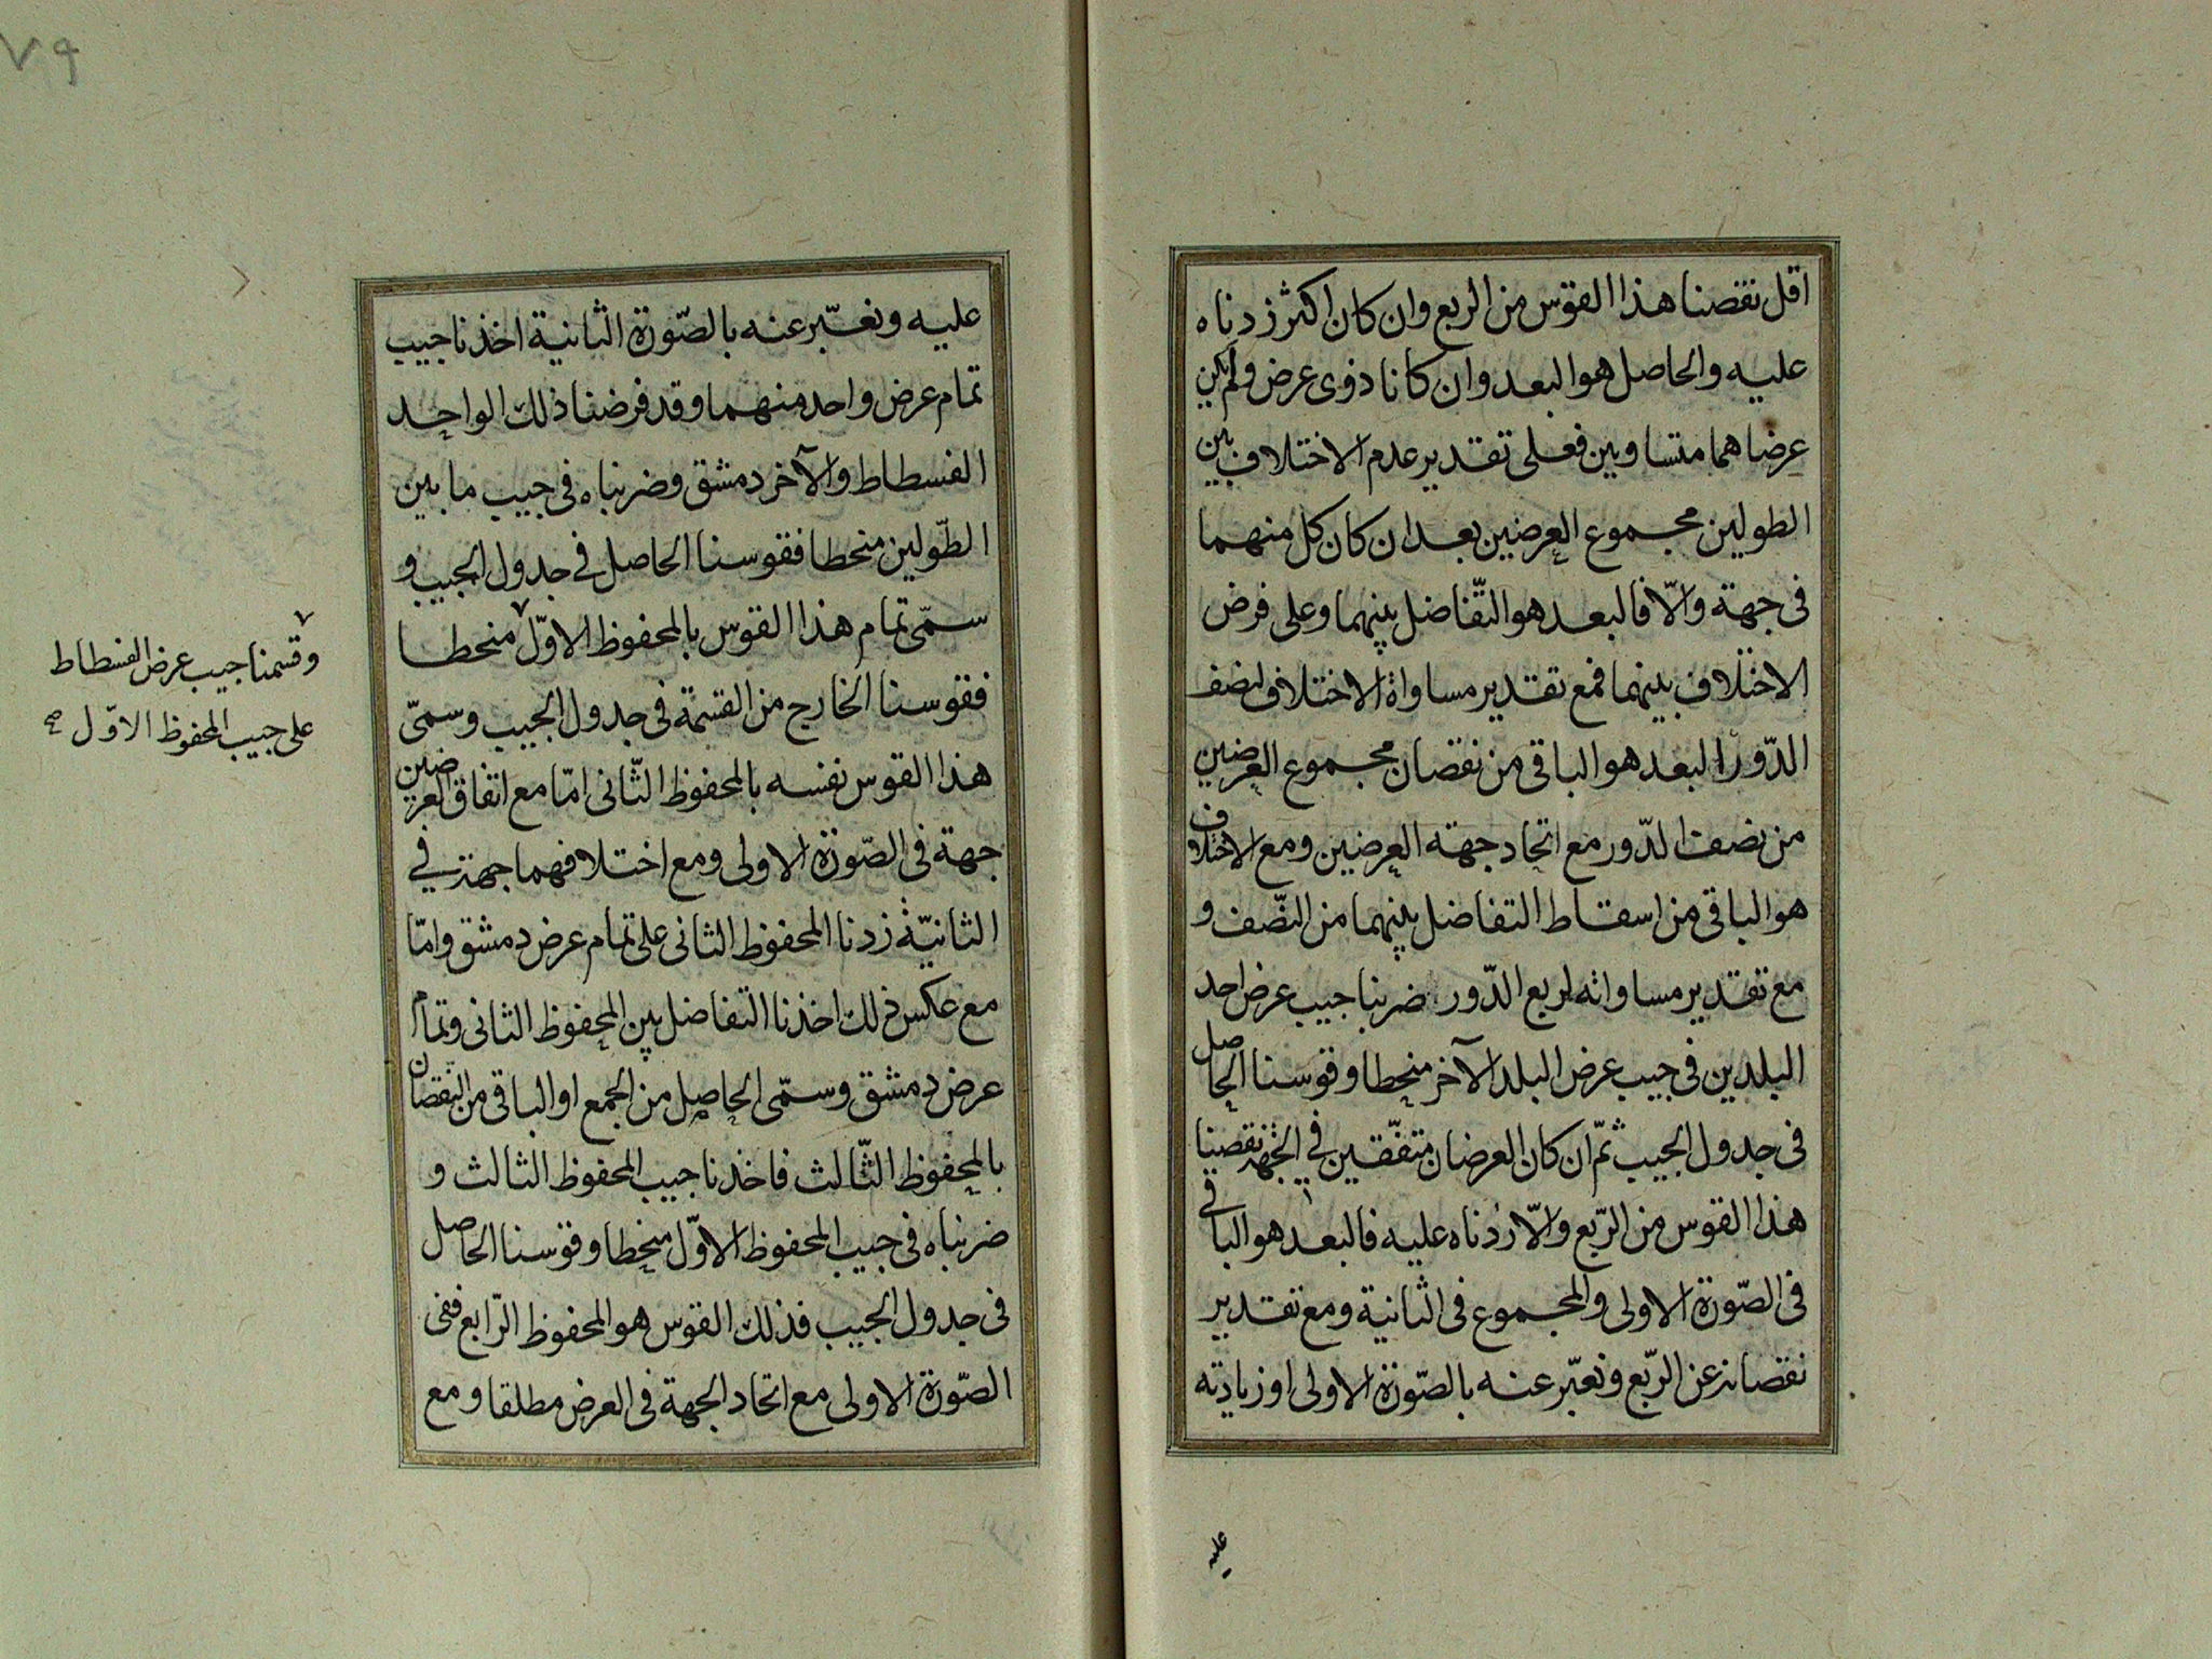 اقل نقصنا هذا القوس من الربع وان كان اكثر زدناه
عليه والحاصل هو البعد وان كانا ذوى عرض ولم يكن
عرضاهما متساويين فعلى تقدير عدم الاختلاف بين
الطولين مجموع العرضين بعد ان كان كل منهما
فى جهة والّا فالبعد هو التّفاضل بينهما وعلى فرض
الاختلاف بينهما فمع تقدير مساواة الاختلاف لنصف
الدّور البعد هو الباقى من نقصان مجموع العرضين
من نصف الدّور مع اتحاد جهة العرضين ومع الاختلاف
هو الباقى من اسقاط التفاضل بينهما من النّصف و
مع تقدير مساواته لربع الدّور ضربنا جيب عرض احد
البلدين فى جيب عرض البلد الآخر منحطا وقوسنا الحاصل
فى جدول الجيب ثمّ ان كان العرضان متفقين فى الجهة نقصنا
هذا القوس من الرّبع والّا زدناه عليه فالبعد هو الباقى
فى الصّورة الاولى والمجموع فى الثانية ومع تقدير
نقصانه عن الرّبع ونعبّر عنه بالصّورة الاولى او زيادته
عليه
٧٩
عليه ونعبّر عنه بالصّورة الثّانية اخذنا جيب
تمام عرض واحد منهما وقد فرضنا ذلك الواحد
الفسطاط والآخر دمشق وضربناه فى جيب ما بين
الطّولين منحطا فقوسنا الحاصل فى جدول الجيب و
سمّى تمام هذا القوس بالمحفوظ الاوّل ٧ منحطا
فقوسنا الخارج من القسمة فى جدول الجيب وسمىّ
هذا القوس نفسه بالمحفوظ الثّانى امّا مع اتفاق العرضين
جهة فى الصّورة الاولى ومع اختلافهما جهة فى
الثانيّة زدنا المحفوظ الثانى على تمام عرض دمشق وامّا
مع عكس ذلك اخذنا التفاضل بين المحفوظ الثانى وتمام
عرض دمشق وسمّى الحاصل من الجمع او الباقى من النقصان
بالمحفوظ الثّالث فاخذنا جيب المحفوظ الثالث و
ضربناه فى جيب المحفوظ الاوّل منحطا وقوسنا الحاصل
فى جدول الجيب فذلك القوس هو المحفوظ الرّابع ففى
الصّورة الاولى مع اتحاد الجهة فى العرض مطلقا ومع
٧
وقسمنا جيب عرض الفسطاط
على جيب المحفوظ الاوّل صح